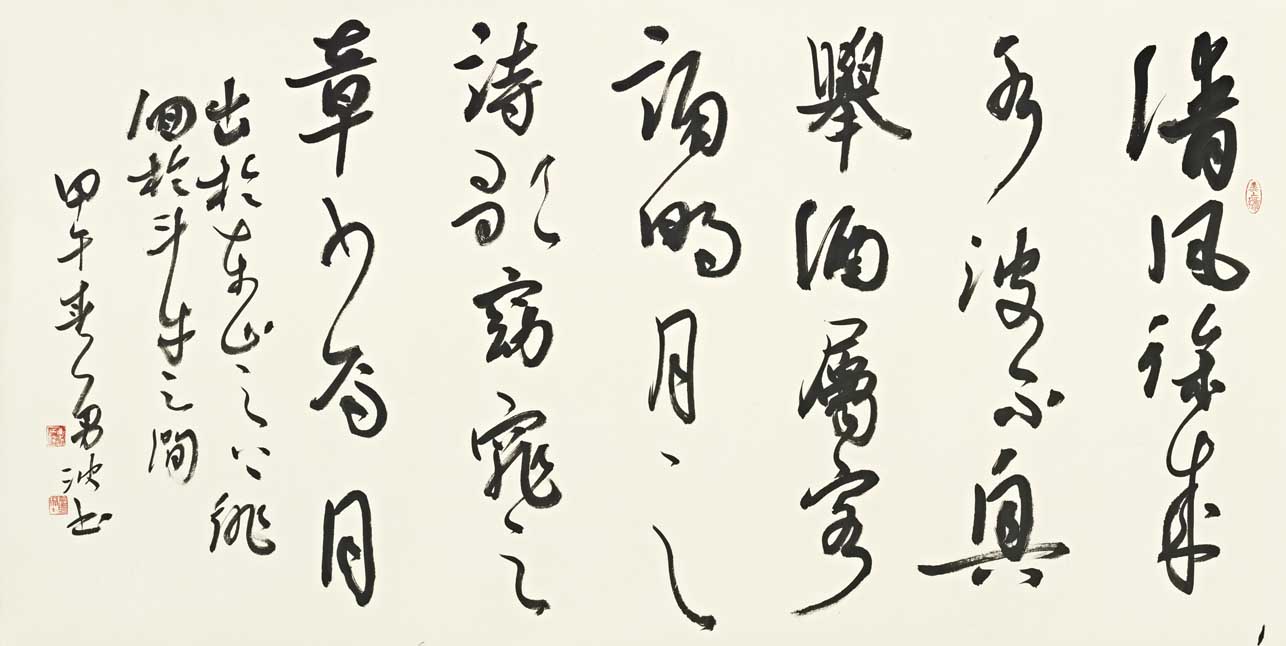 清风徐来
水波不興
舉酒屬客
誦明月之
詩歌窈窕之
章少焉月
出於東山之上徘
徊於斗牛之間
甲午春勇波书